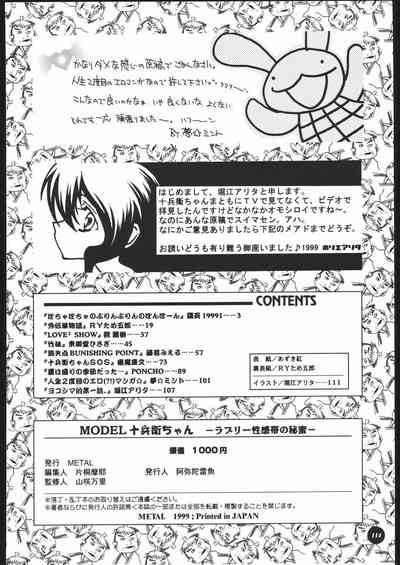 かなりダメな感じの原稿でごめんなさい。
人生2度目のエロマンガなので許して下さい。
こんなので良いのかなぁ いや 良くないな よくない
BY 夢☆ミント
はじめまして、堀江アリタと申します。
十兵衛ちゃんまともにTVで見てなくて、ビデオで
拝見したんですけどなかなかオモシロイですね〜。
なのにあんな原稿でスイマセン。アハ。
なにかご意見ありましたら下記のメアドまでどうぞ。
お誘いどうも有り難う御座いました♪1999 ホリエアリタ
CONTENTS
『ぽちゃぽちゃのぷりんぷりんのぼんぼーん』議長1999!---3
『外伝屋物語』RYため五郎---19
『竹林』京御愛ひさぎ---45
『十兵衛ちゃんSOS』
---PONCHO---89
『人生2度目のエロ(?!)マンガ☆』夢☆ミント---101
『ヨコシマ的第一話。』堀江アリタ---107
表 紙/あずき紅
裏表紙/RYため五郎
イラスト/堀江アリタ---111
MODEL 十兵衛ちゃん −ラスリー性感帯の秘蜜−
価 1000円
発行 METAL
編集人 片桐摩耶 発行人 阿弥陀雷魚
監修人 山咲万里
※落丁・乱丁本のお取り替えはご遠慮ください。
※著者ならびに発行人の許諾無く本誌の一部または全部を転載・複製することを禁じます。
METAL 1999 ; Printed in JAPAN
114